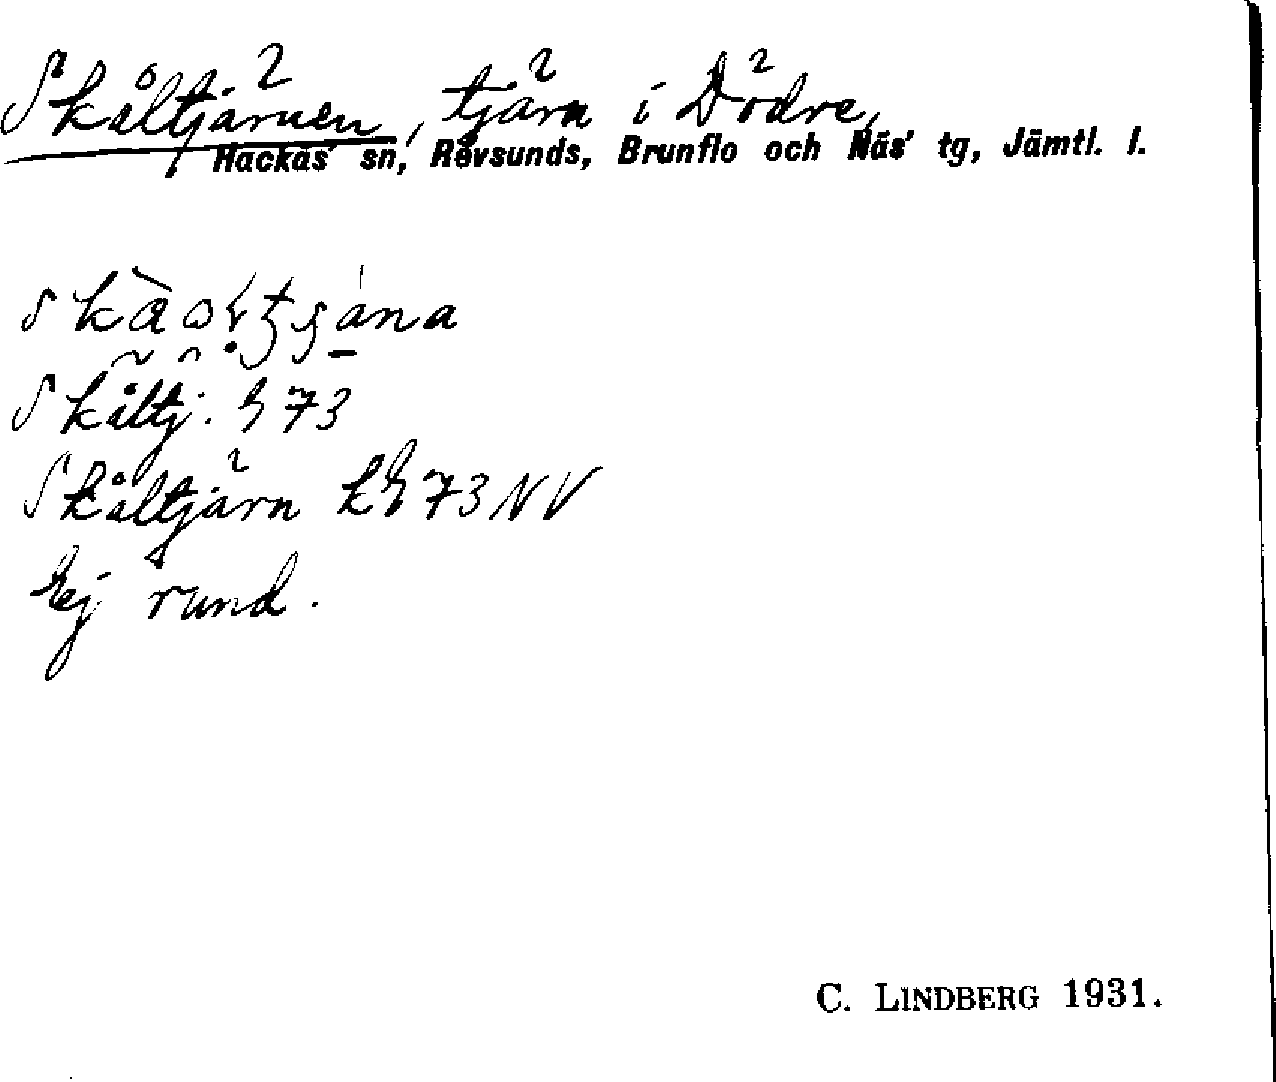 Skåltjärnen, tjärn i Dödre,
Hackås' sn, Revsunds, Brunflo och Näs' tg, Jämtl. l.
Skåltj. 73
Skåltjärn 73 NV
Ej rund.
C. LINDBERG 1931.